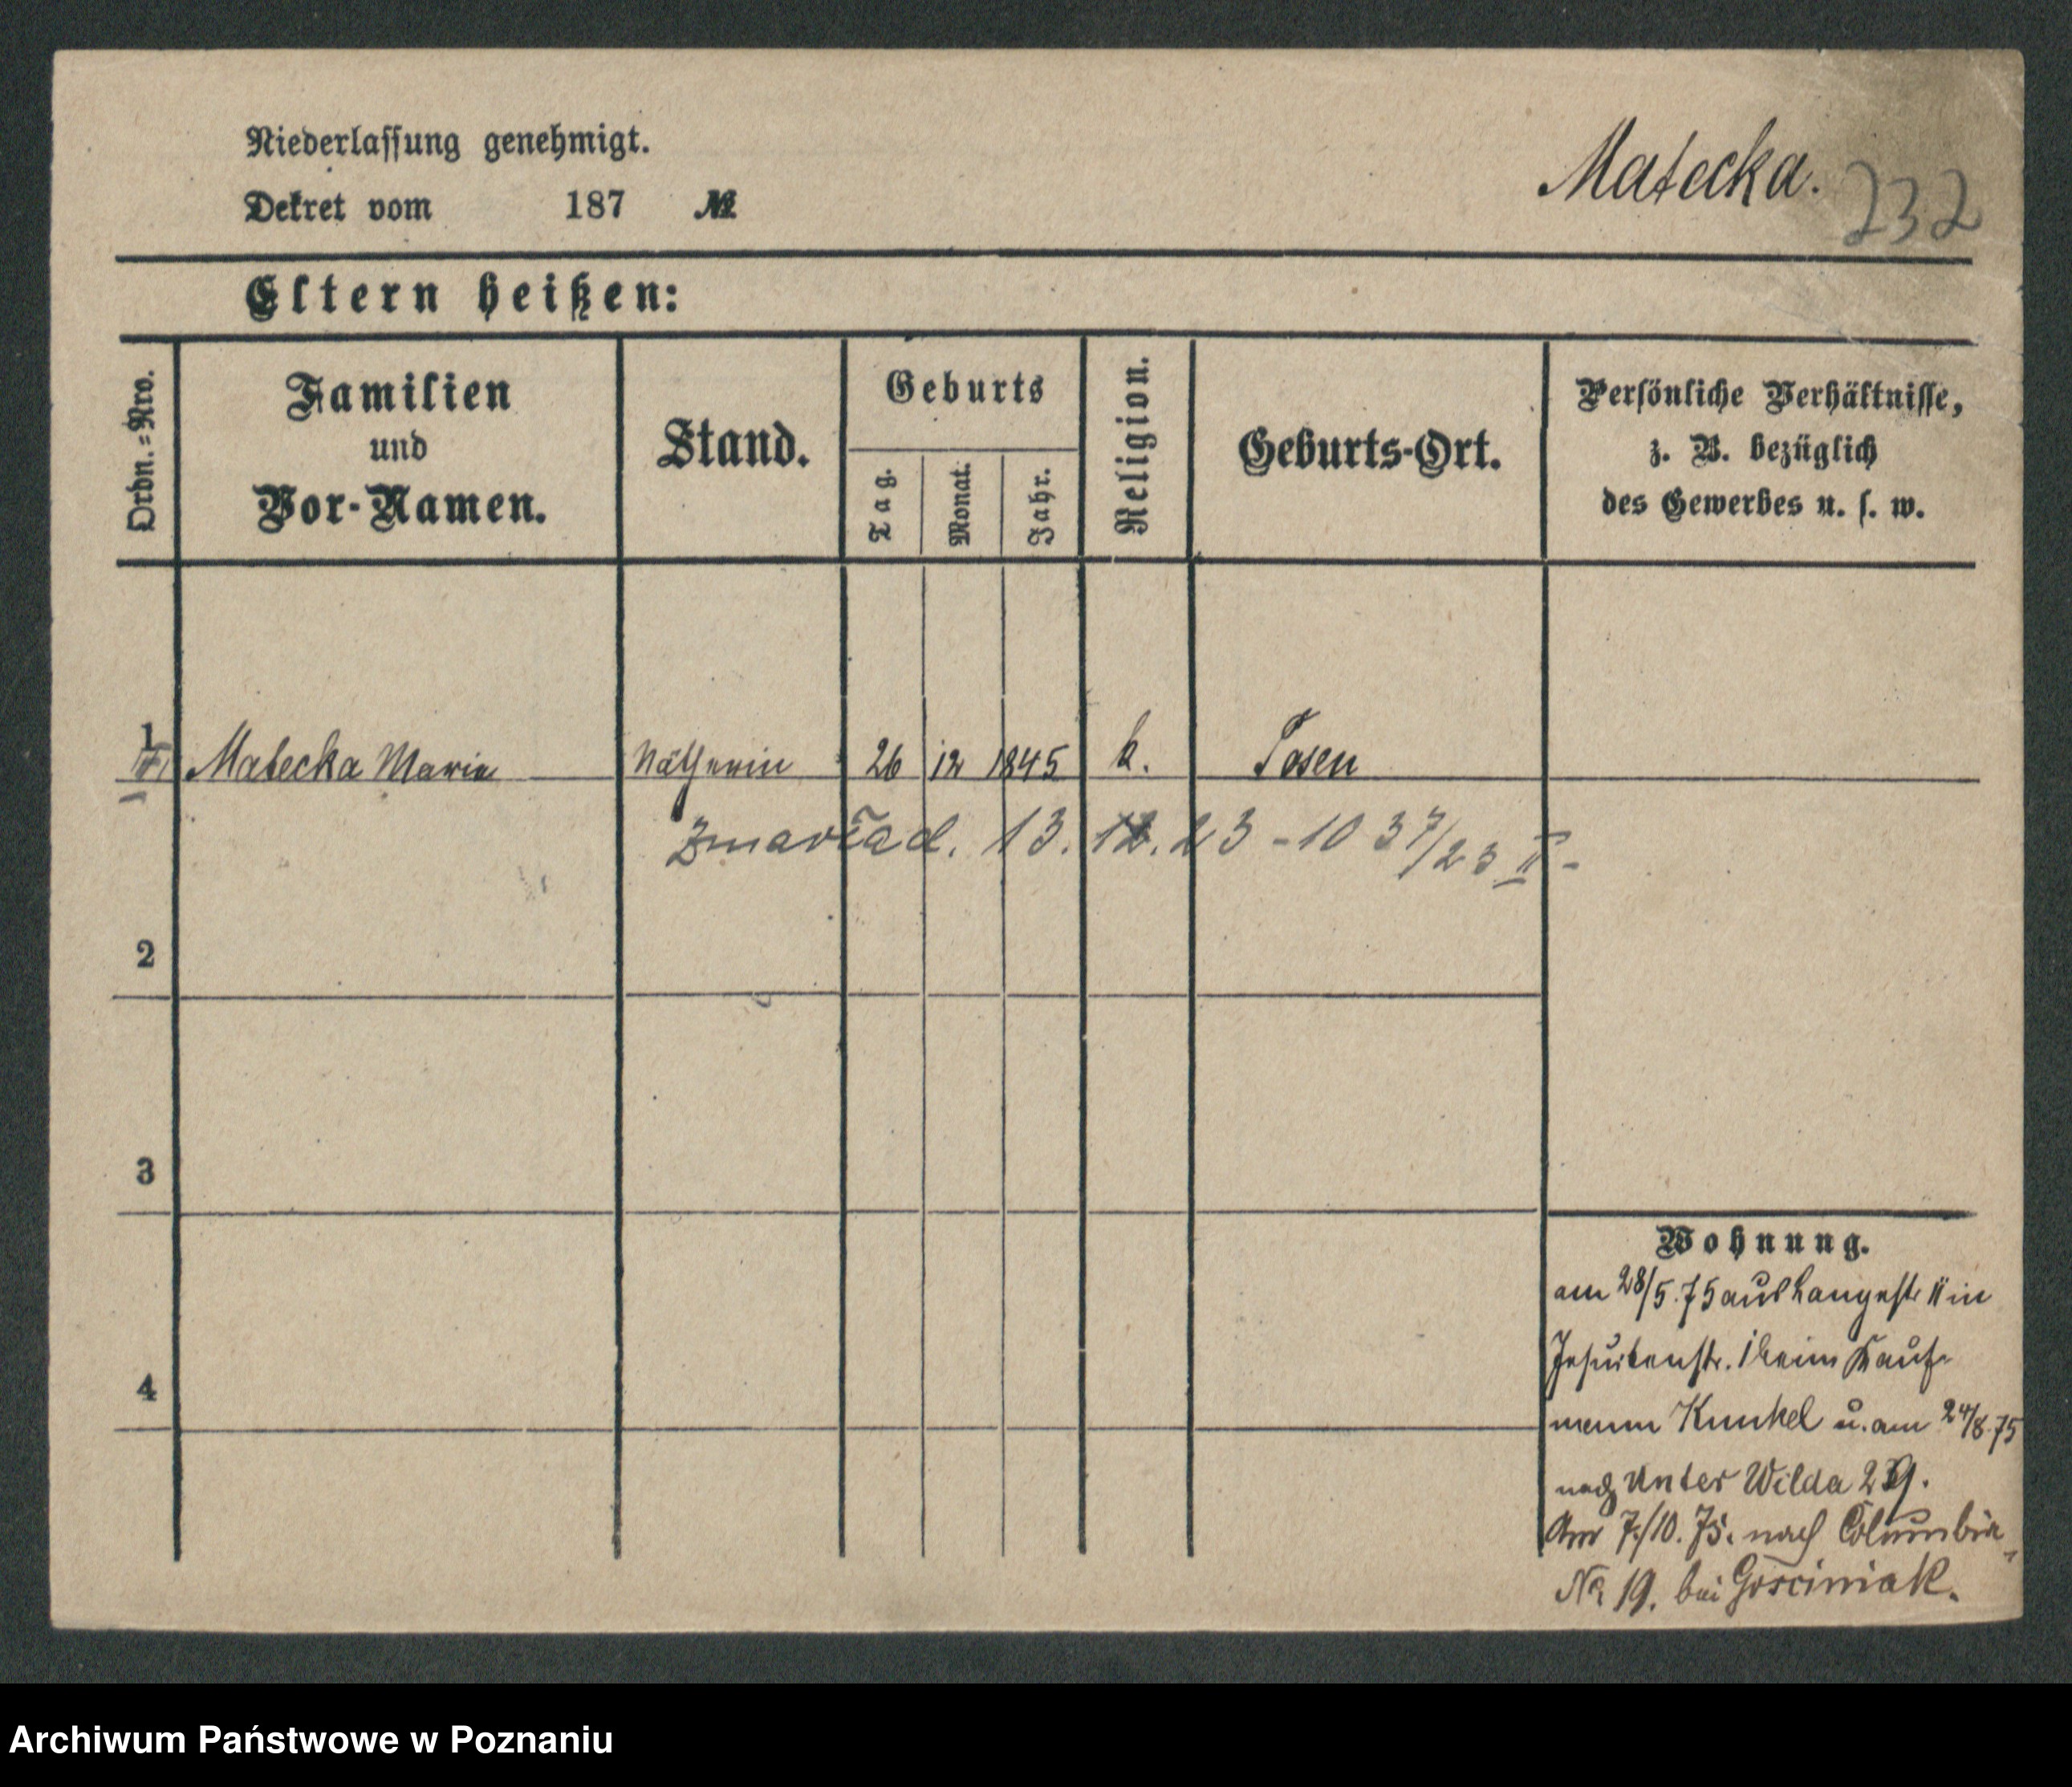 Niederlassung genehmigt.
Dekret vom 187 №
Matecka. 232
Eltern heißen:
Ordn.=Nro.
Familien
und
Vor-Namen.
Stand.
Geburts
Tag.
Monat.
Jahr.
Religion.
Geburts-Ort.
Persönliche Verhältnisse,
z. B. bezüglich
des Gewerbes u. s. w.
1 Matecka Maria Nätherin 26 12 1845 k. Posen
zmarła d. 13. 12. 23 - 10 37/23 II -
2
3
4
Wohnung.
am 28/5. 75 aus Langestr. 11 in
Jesuitenstr. 1 beim Kauf-
mann Kunkel u. am 24/8. 75
nach Unter Wilda 29.
Am 7/10. 75. nach Columbia
No 19. bei Gościniak.
Archiwum Państwowe w Poznaniu